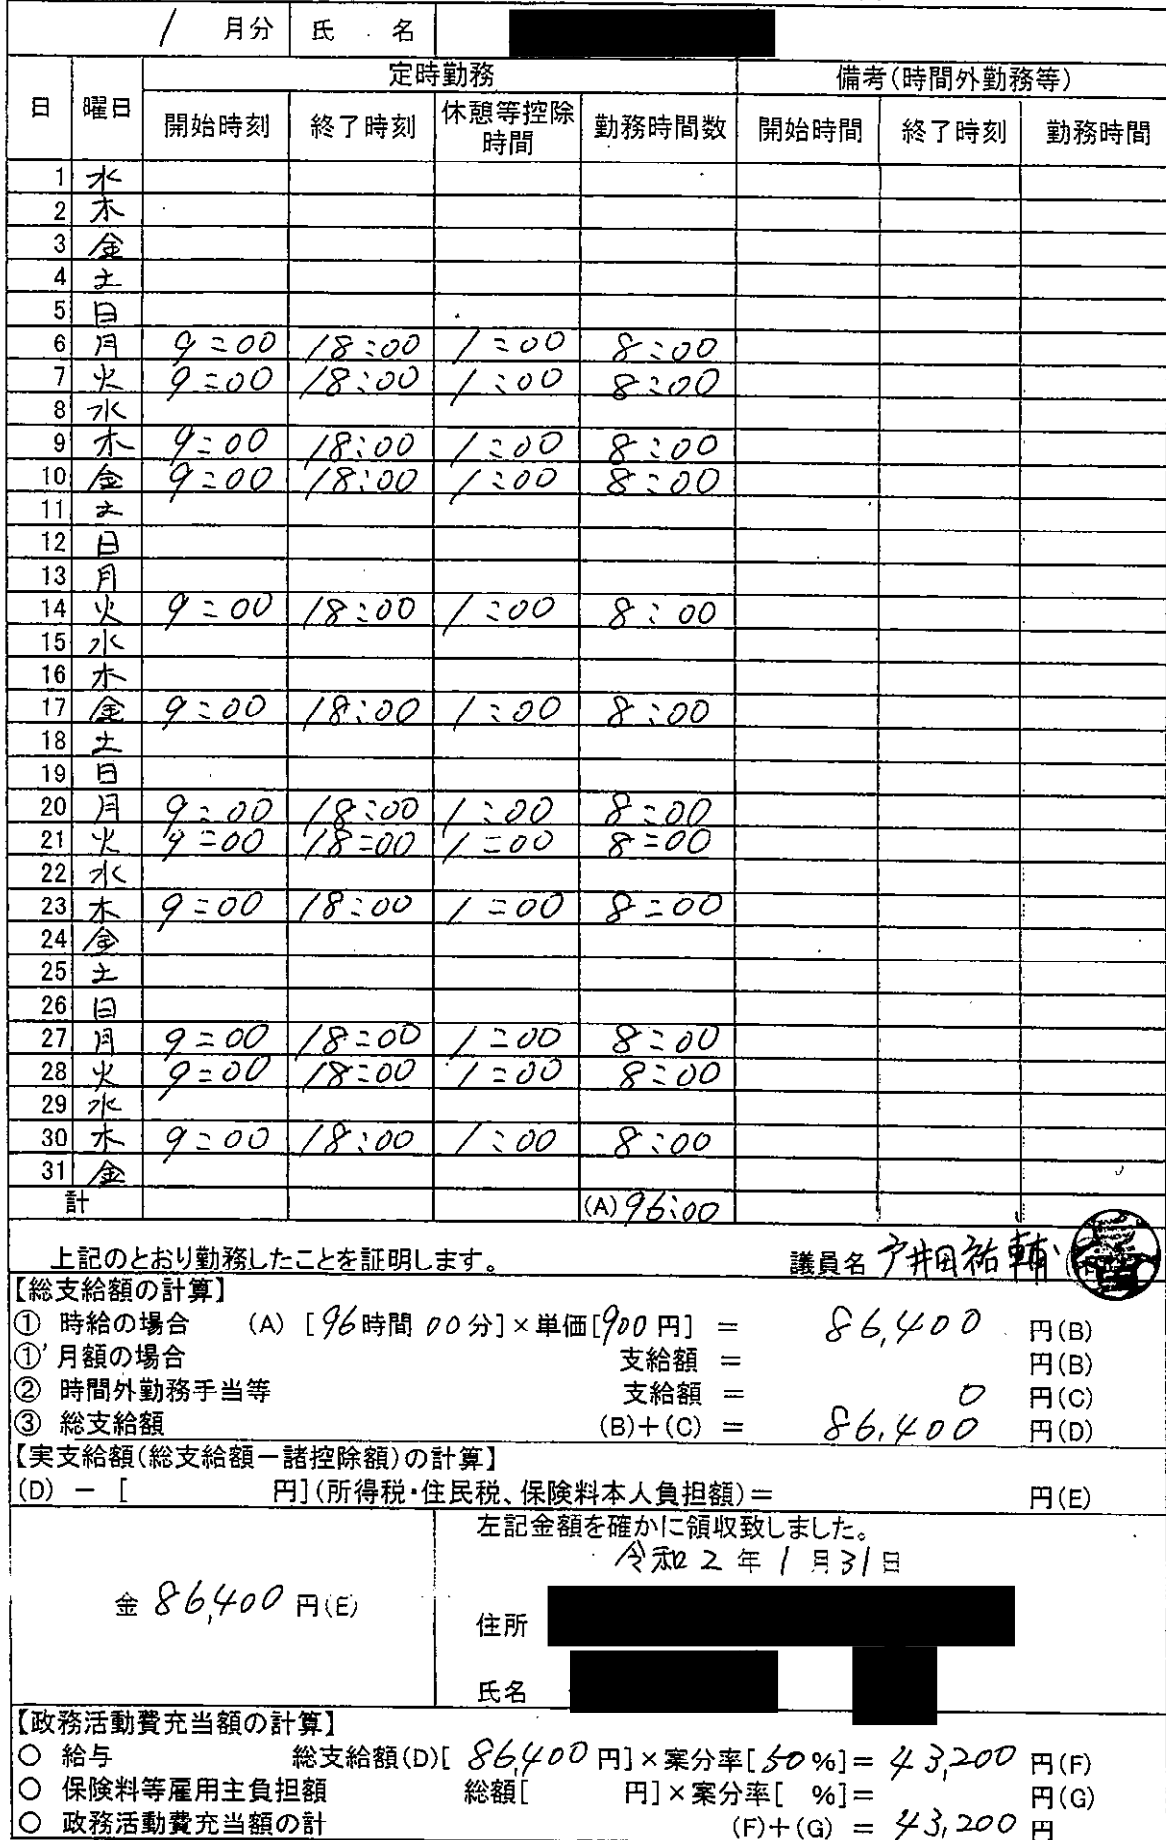 1 月分 氏 名
日 曜日 定時勤務 備考(時間外勤務等)
開始時刻 終了時刻 休憩等控除時間 勤務時間数 開始時間 終了時刻 勤務時間
1 水
2 木
3 金
4 土
5 日
6 月 9:00 18:00 1:00 8:00
7 火 9:00 18:00 1:00 8:00
8 水
9 木 9:00 18:00 1:00 8:00
10 金 9:00 18:00 1:00 8:00
11 土
12 日
13 月
14 火 9:00 18:00 1:00 8:00
15 水
16 木
17 金 9:00 18:00 1:00 8:00
18 土
19 日
20 月 9:00 18:00 1:00 8:00
21 火 9:00 18:00 1:00 8:00
22 水
23 木 9:00 18:00 1:00 8:00
24 金
25 土
26 日
27 月 9:00 18:00 1:00 8:00
28 火 9:00 18:00 1:00 8:00
29 水
30 木 9:00 18:00 1:00 8:00
31 金
計 (A) 96:00
上記のとおり勤務したことを証明します。 議員名 戸井田祐輔
【総支給額の計算】
① 時給の場合 (A) [96時間 00分]×単価[900円] = 86,400 円(B)
①' 月額の場合 支給額 = 円(B)
② 時間外勤務手当等 支給額 = 0 円(C)
③ 総支給額 (B)+(C) = 86,400 円(D)
【実支給額(総支給額-諸控除額)の計算】
(D) - [ 円](所得税・住民税、保険料本人負担額)= 円(E)
左記金額を確かに領収致しました。
令和2年1月31日
金 86,400 円(E)
住所
氏名
【政務活動費充当額の計算】
○ 給与 総支給額(D)[ 86,400 円]×案分率[50%]= 43,200 円(F)
○ 保険料等雇用主負担額 総額[ 円]×案分率[ %]= 円(G)
○ 政務活動費充当額の計 (F)+(G) = 43,200 円